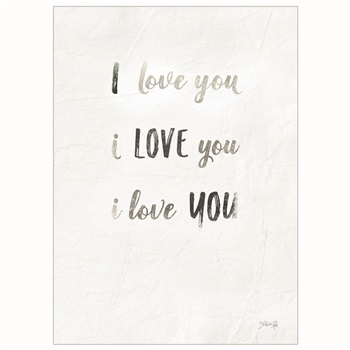 I love you
i LOVE you
i love YOU